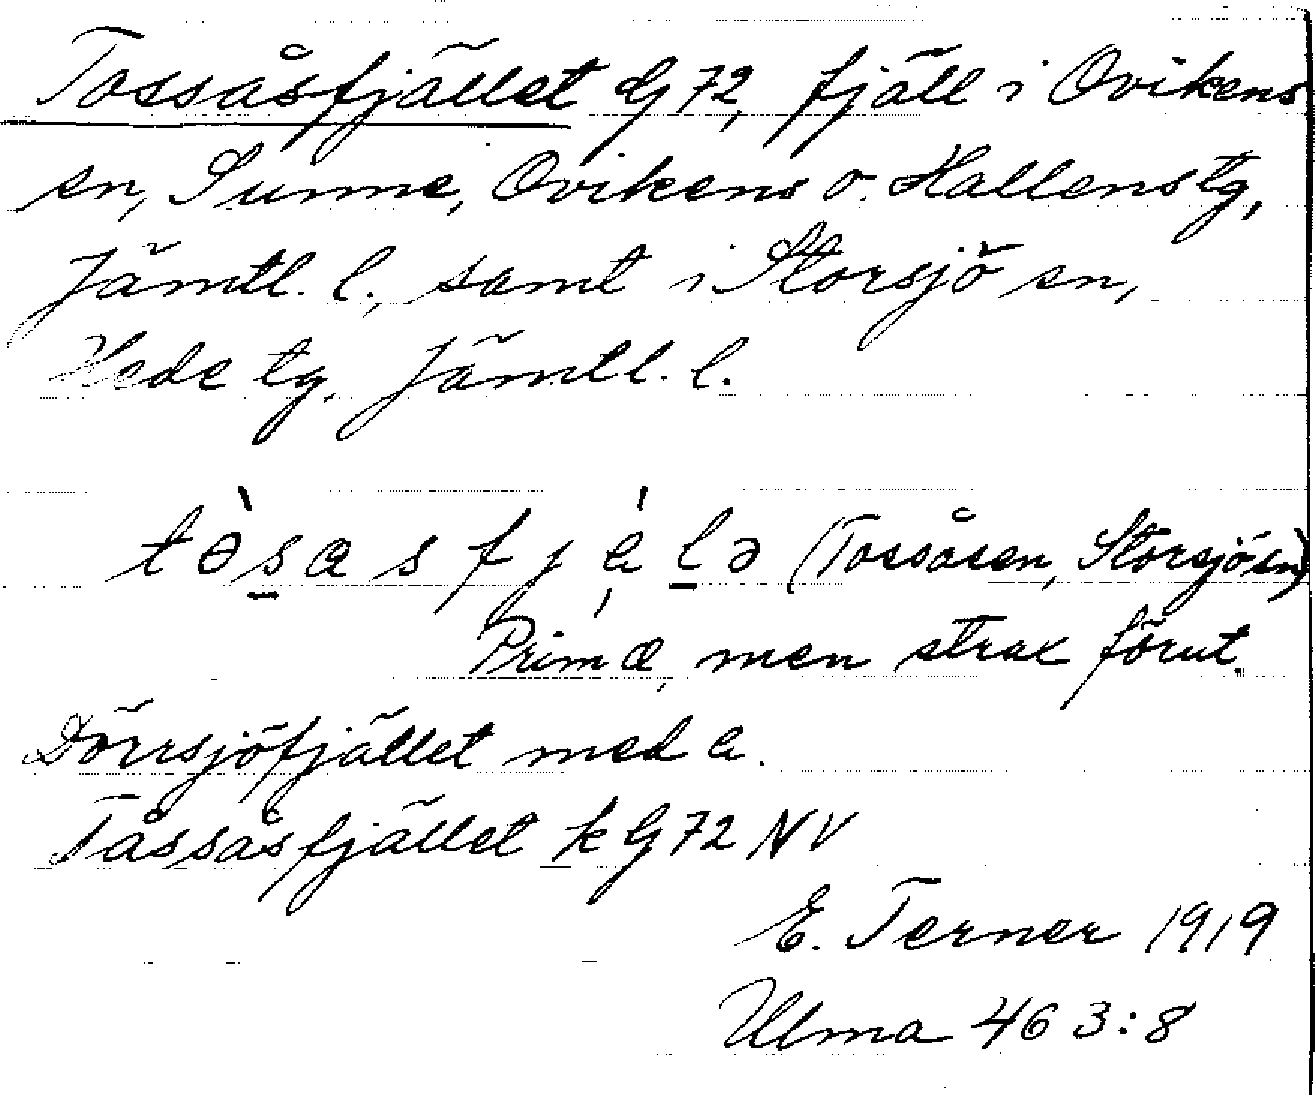 Tossåsfjället G 72, fjäll i Ovikens
sn, Sunne, Ovikens o. Hallens tg,
Jämtl. l., samt i Storsjö sn,
Hede tg, Jämtl. l.
tɵ̀sasfjálə (Tossåsen, Storsjö sn)
Prim æ, men strax förut
Dörrsjöfjället med a.
Tåssåsfjället k G 72 NV
E. Terner 1919
Ulma 463:8